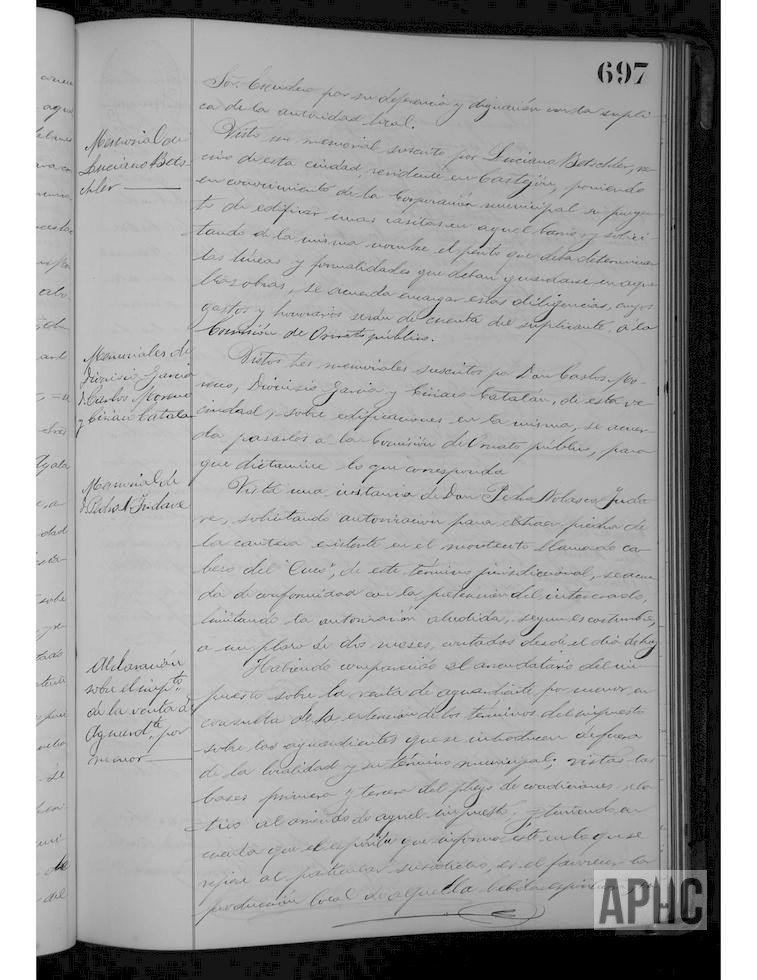 697
Sor. Escudero por su deferencia y dignación con la supli-
ca de la autoridad local.
Memorial de
Luciano Bots-
chler
Visto un memorial suscrito por Luciano Botschler, ve-
cino de esta ciudad, residente en Castejón, poniendo
en conocimiento de la Corporación municipal su proyec-
to de edificar unas casitas en aquel barrio y solici-
tando de la misma nombre el perito que deba determinar
las líneas y formalidades que deban guardarse en aque-
llas obras, se acuerda encargar estas diligencias, cuyos
gastos y honorarios serán de cuenta del suplicante, a la
Comisión de Ornato público.
Memoriales de
Dionisio García
D. Carlos Moreno
y Ciriaco Catalán
Vistos tres memoriales suscritos por Don Carlos Mo-
reno, Dionisio García y Ciriaco Catalán, de esta ve-
cindad, sobre edificaciones en la misma, se acuer-
da pasarlos a la Comisión de Ornato público, para
que dictamine lo que corresponda
Memorial de
D. Pedro N. Indave
Vista una instancia de Don Pedro Nolasco Inda-
ve, solicitando autorización para extraer piedra de
la cantera existente en el montecito llamado ca-
bezo del "Cuco", de este término jurisdiccional, se acuer-
da de conformidad con la pretensión del interesado,
limitando la autorización aludida, según es costumbre,
a un plazo de dos meses, contados desde el día de hoy
Aclaración
sobre el impto.
de la venta de
Aguardte. por
menor
Habiendo comparecido el arrendatario del im-
puesto sobre la venta de aguardiente por menor en
consulta de la extensión de los términos del impuesto
sobre los aguardientes que se introducen de fuera
de la localidad y su término municipal; vistas las
bases primera y tercera del pliego de condiciones rela-
tivo al arriendo de aquel impuesto, y teniendo en
cuenta que el espíritu que informa este en lo que se
refiere al particular susodicho, es el favorecer la
producción local de aquella bebida espirituosa
APHC